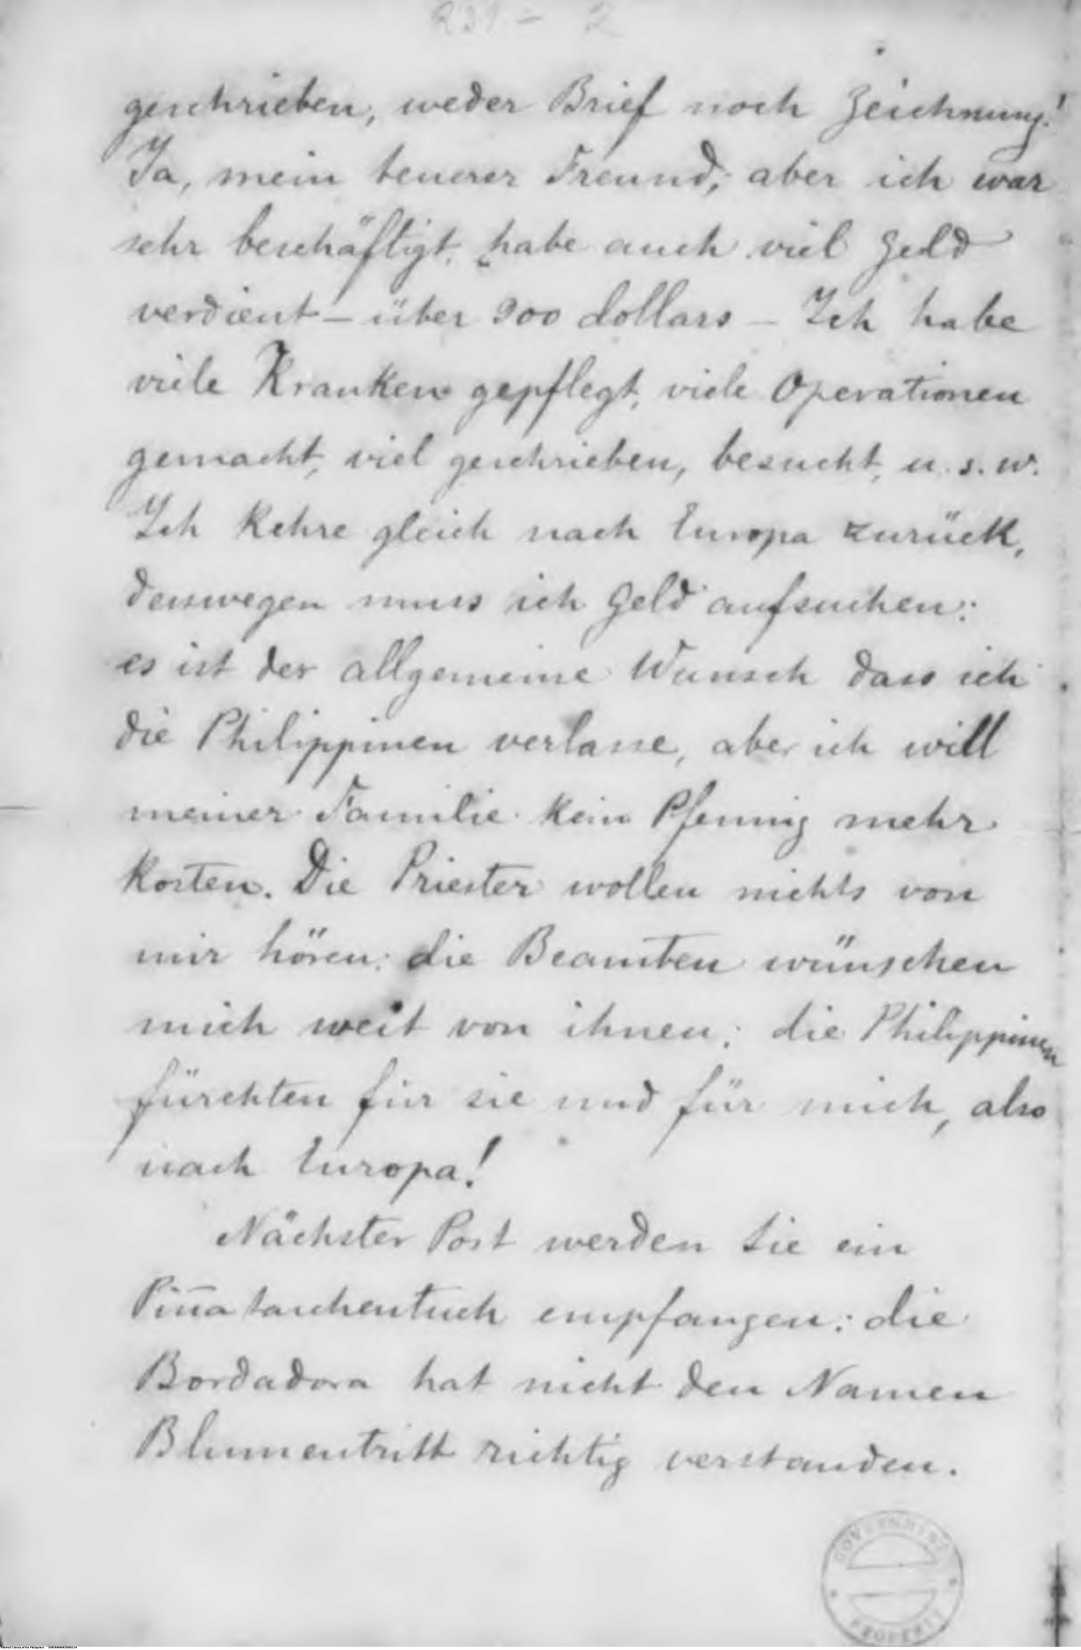 231 - 2
geschrieben, weder Brief noch Zeichnung!
Ja, mein teuerer Freund, aber ich war
sehr beschäftigt, habe auch viel Geld
verdient – über 900 dollars – Ich habe
viele Kranken gepflegt, viele Operationen
gemacht, viel geschrieben, besucht, u. s. w.
Ich kehre gleich nach Europa zurück,
desswegen muss ich Geld aufsuchen:
es ist der allgemeine Wunsch dass ich
die Philippinen verlasse, aber ich will
meiner Familie kein Pfennig mehr
kosten. Die Priester wollen nichts von
mir hören; die Beamten wünschen
mich weit von ihnen; die Philippinen
fürchten für sie und für mich, also
nach Europa!
Nächster Post werden Sie ein
Piñataschentuch empfangen: die
Bordadora hat nicht den Namen
Blumentritt richtig verstanden.
GOVERNMENT
PROPERTY